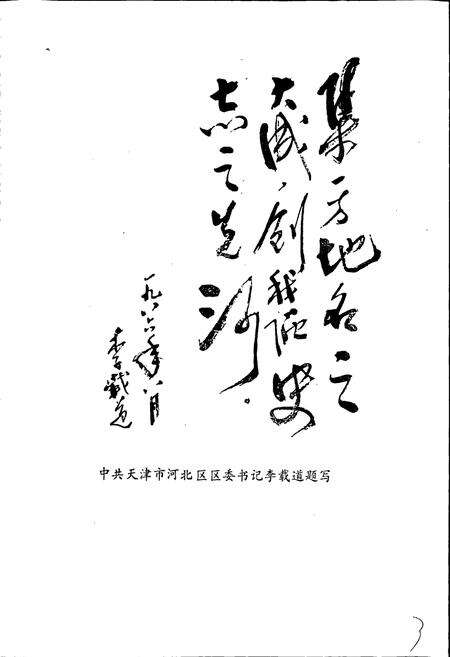 集一方地名之
大成，创我区史
志之先河。
一九八六年八月
李载道
中共天津市河北区区委书记李载道题写
3